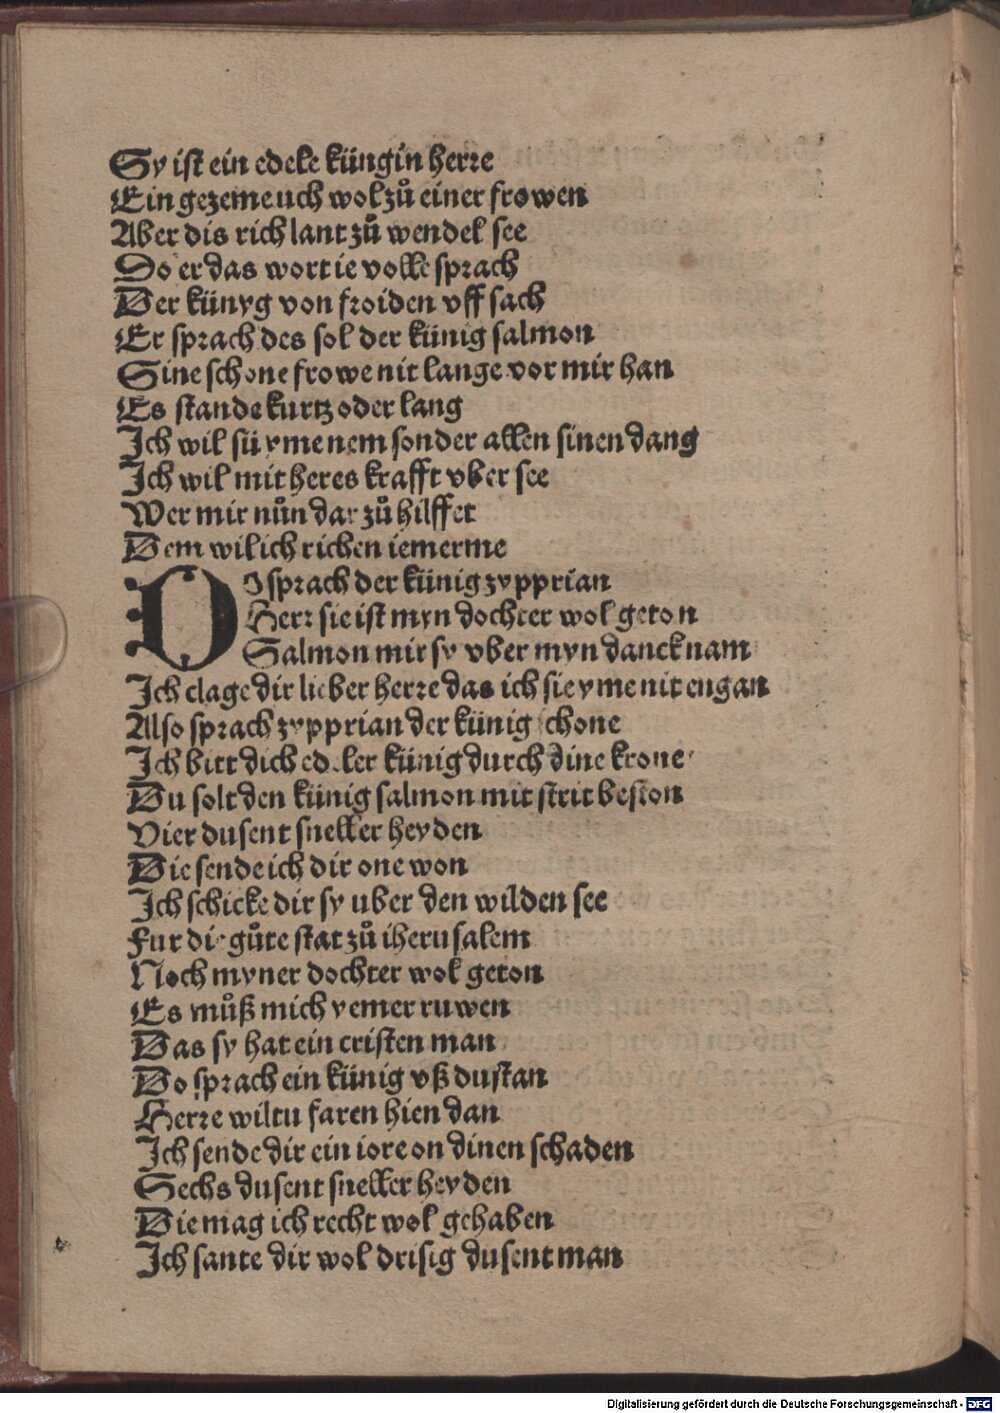 Sy ist ein edele küngin herre
Ein gezeme uch wol zů einer frowen
Aber dis rich lant zů wendel see
Do er das wort ie volle sprach
Der künyg von froiden vff sach
Er sprach des sol der künig salmon
Sine schone frowe nit lange vor mir han
Es stande kurtz oder lang
Ich wil sü yme nem sonder allen sinen dang
Ich wil mit heres krafft vber see
Wer mir nůn dar zů hilffet
Dem wil ich richen iemerme
DO sprach der künig zypprian
Herr sie ist myn dochter wol geton
Salmon mir sy vber myn danck nam
Ich clage dir lieber herre das ich sie yme nit engan
Also sprach zypprian der künig schone
Ich bitt dich edeler künig durch dine krone
Du solt den künig salmon mit strit beston
Vier dusent sneller heyden
Die sende ich dir one won
Ich schicke dir sy uber den wilden see
Fur die gůte stat zů iherusalem
Noch myner dochter wol geton
Es můß mich yemer ruwen
Das sy hat ein cristen man
Do sprach ein künig vß dustan
Herre wiltu faren hien dan
Ich sende dir ein iore on dinen schaden
Sechs dusent sneller heyden
Die mag ich recht wol gehaben
Ich sante dir wol drisig dusent man
Digitalisierung gefördert durch die Deutsche Forschungsgemeinschaft - DFG